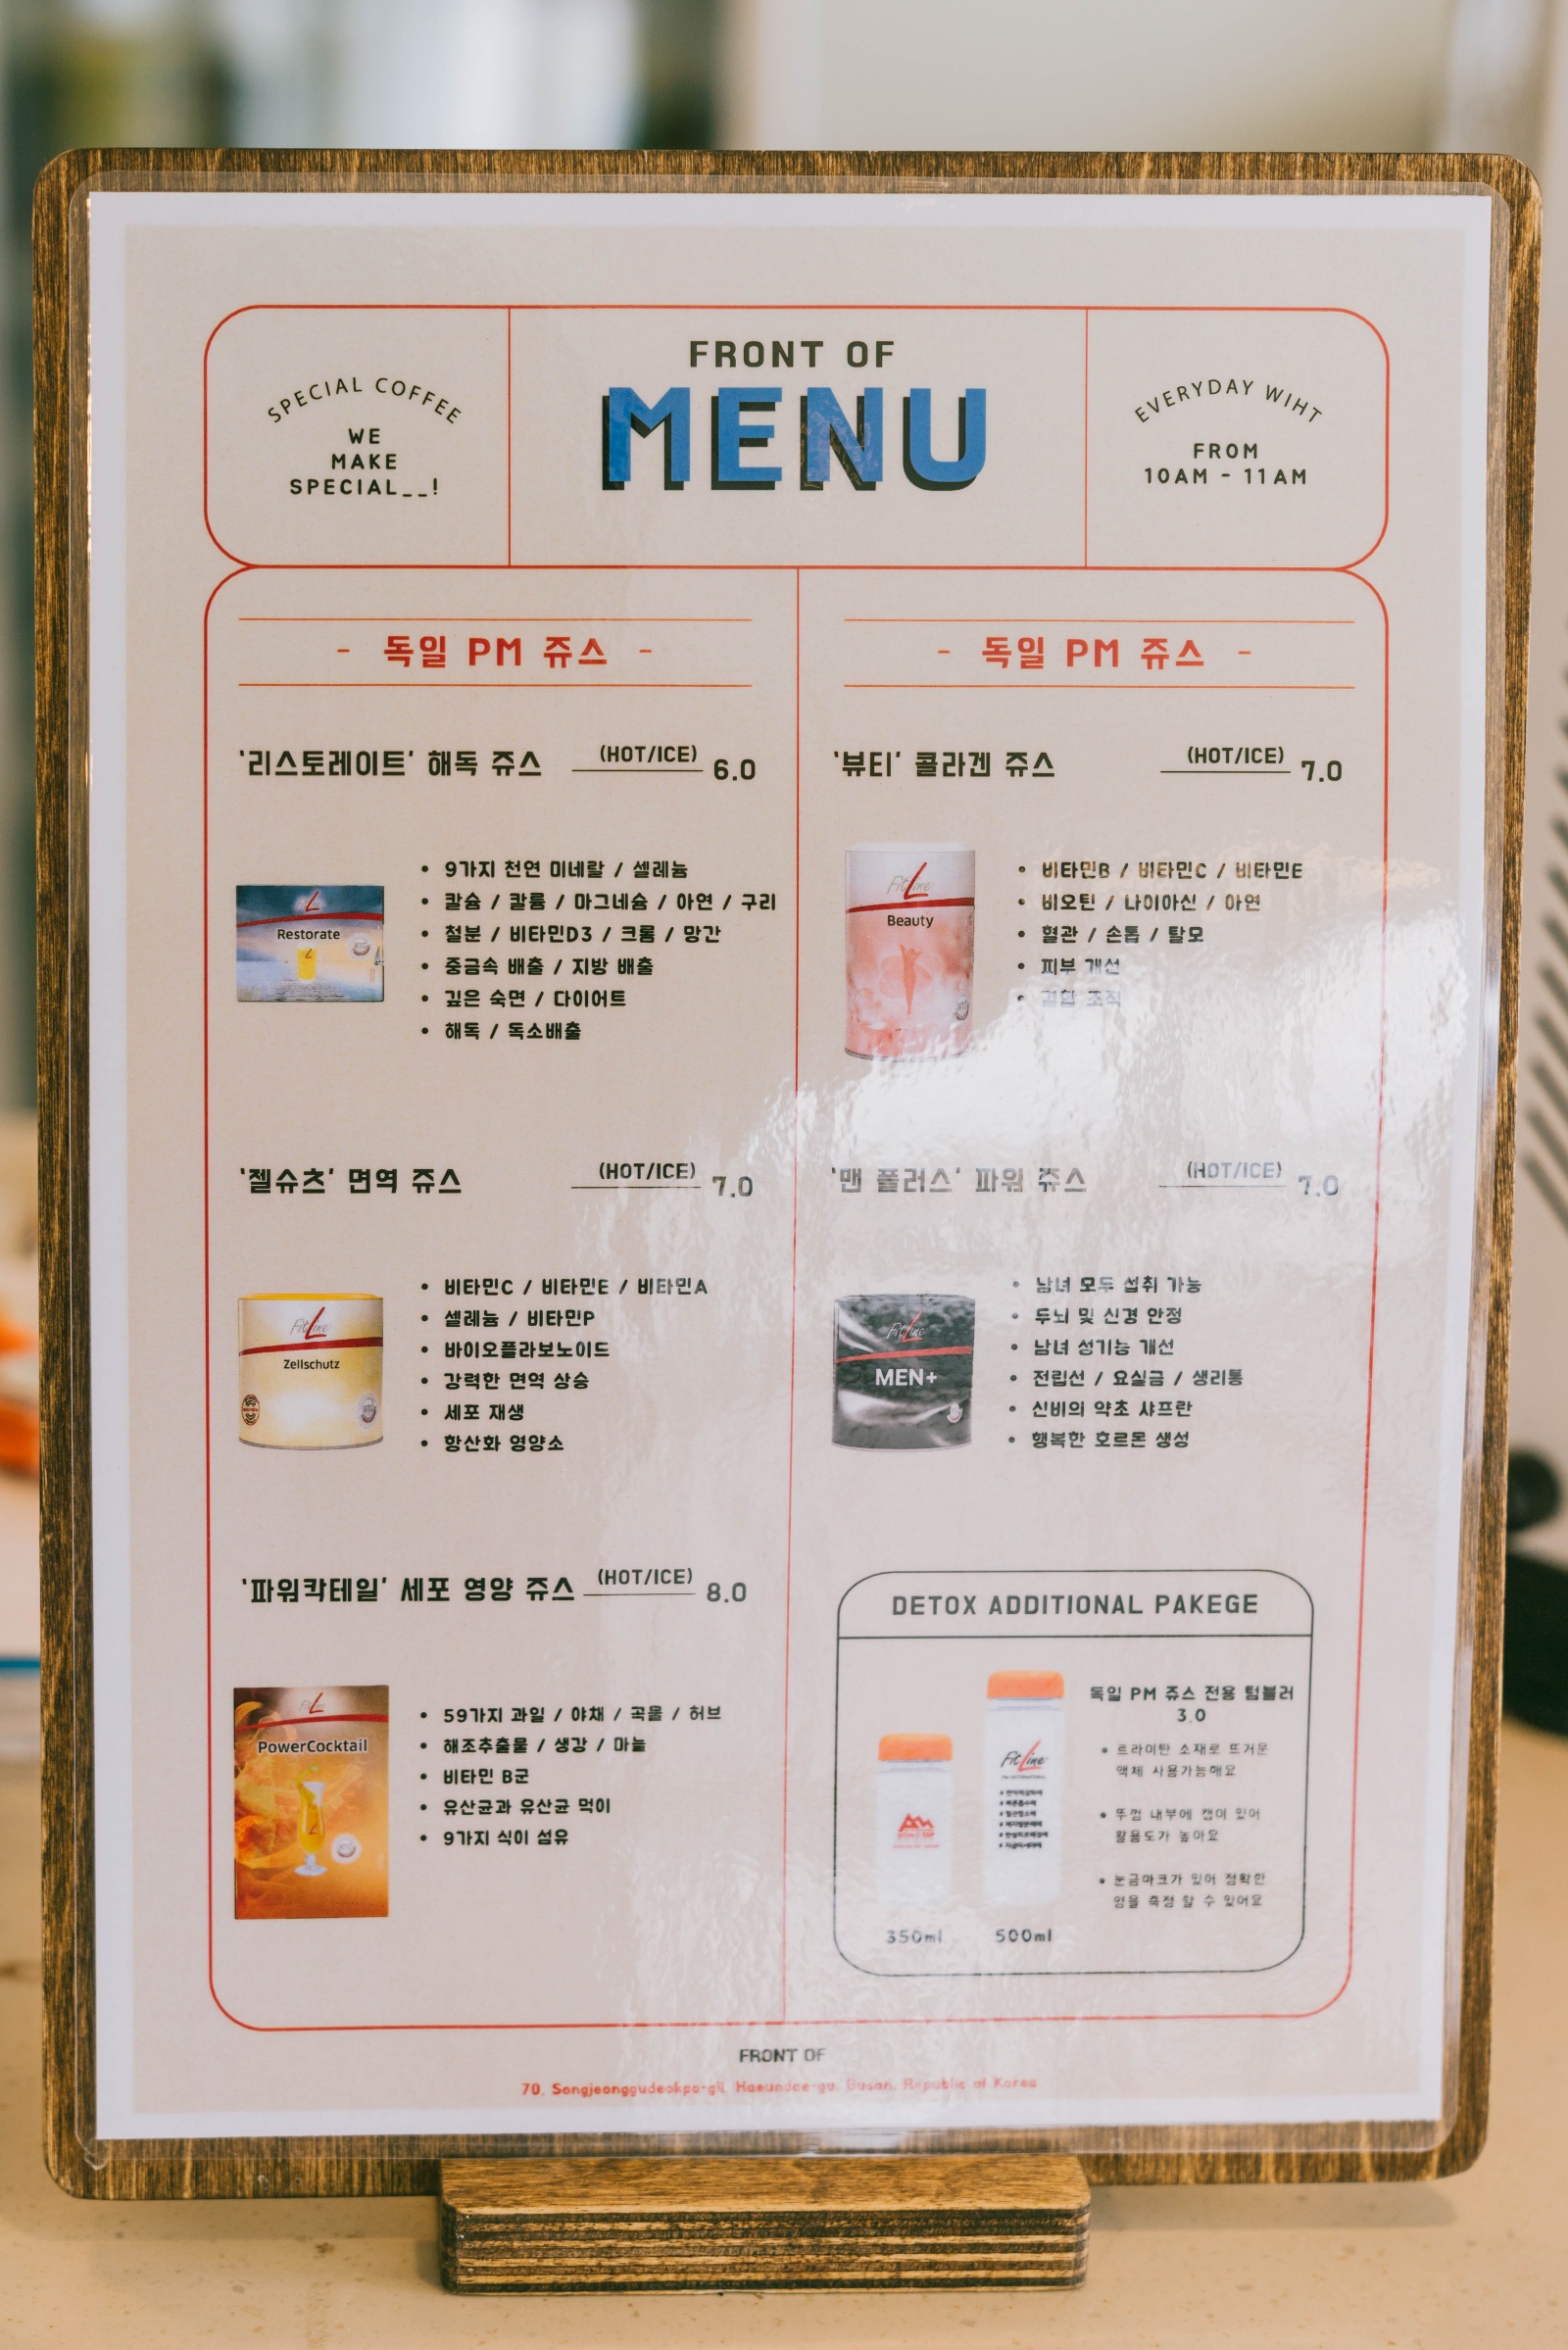 SPECIAL COFFEE
WE
MAKE
SPECIAL__!
FRONT OF
MENU
EVERYDAY WIHT
FROM
10AM - 11AM
- 독일 PM 쥬스 -
'리스토레이트' 해독 쥬스 (HOT/ICE) 6.0
FitLine
Restorate
• 9가지 천연 미네랄 / 셀레늄
• 칼슘 / 칼륨 / 마그네슘 / 아연 / 구리
• 철분 / 비타민D3 / 크롬 / 망간
• 중금속 배출 / 지방 배출
• 깊은 숙면 / 다이어트
• 해독 / 독소배출
'젤슈츠' 면역 쥬스 (HOT/ICE) 7.0
FitLine
Zellschutz
• 비타민C / 비타민E / 비타민A
• 셀레늄 / 비타민P
• 바이오플라보노이드
• 강력한 면역 상승
• 세포 재생
• 항산화 영양소
'파워칵테일' 세포 영양 쥬스 (HOT/ICE) 8.0
FitLine
PowerCocktail
• 59가지 과일 / 야채 / 곡물 / 허브
• 해조추출물 / 생강 / 마늘
• 비타민 B군
• 유산균과 유산균 먹이
• 9가지 식이 섬유
- 독일 PM 쥬스 -
'뷰티' 콜라겐 쥬스 (HOT/ICE) 7.0
FitLine
Beauty
• 비타민B / 비타민C / 비타민E
• 비오틴 / 나이아신 / 아연
• 혈관 / 손톱 / 탈모
• 피부 개선
• 결합 조직
'맨 플러스' 파워 쥬스 (HOT/ICE) 7.0
FitLine
MEN+
• 남녀 모두 섭취 가능
• 두뇌 및 신경 안정
• 남녀 성기능 개선
• 전립선 / 요실금 / 생리통
• 신비의 약초 샤프란
• 행복한 호르몬 생성
DETOX ADDITIONAL PAKEGE
FitLine
350ml
500ml
독일 PM 쥬스 전용 텀블러
3.0
• 트라이탄 소재로 뜨거운
액체 사용가능해요
• 뚜껑 내부에 캡이 있어
활용도가 높아요
• 눈금마크가 있어 정확한
양을 측정 할 수 있어요
FRONT OF
70, Songjeonggudeokpo-gil, Haeundae-gu, Busan, Republic of Korea